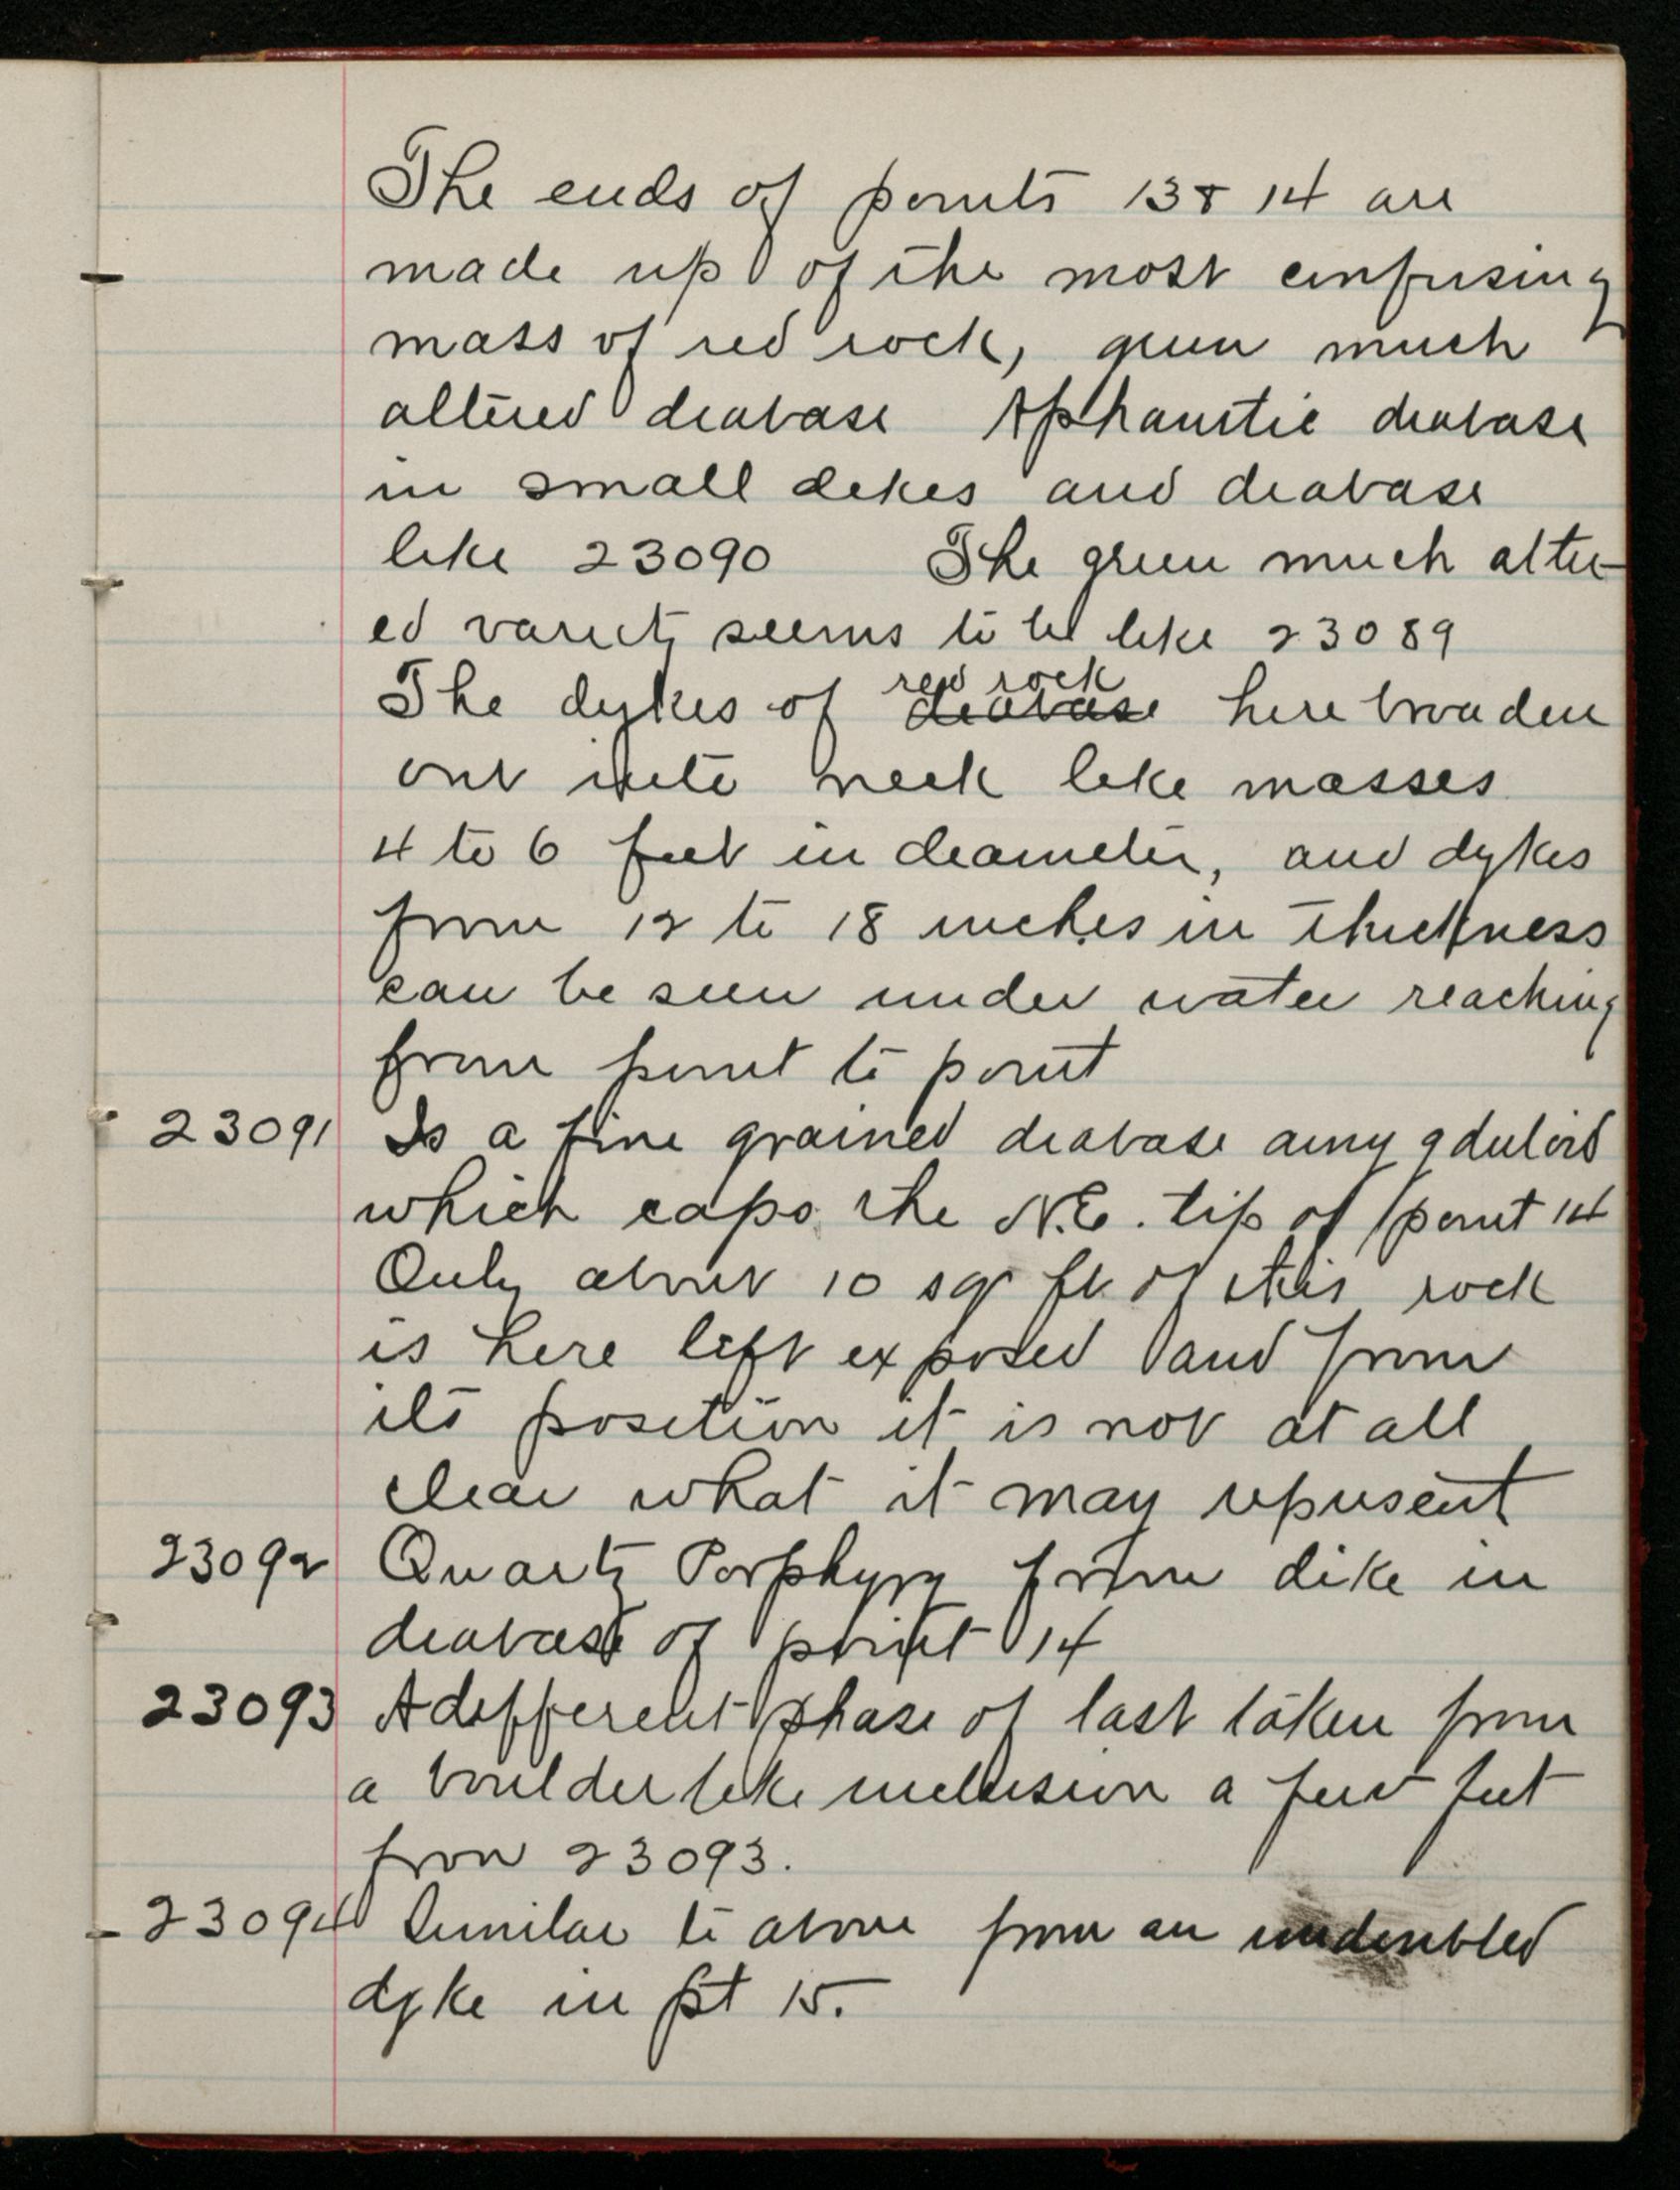 The ends of points 13 & 14 are
made up of the most confusing
mass of red rock, green much
altered diabase Aphanitic diabase
in small dikes and diabase
like 23090 The green much alter-
ed variety seems to be like 23089
red rock
The dykes of diabase here broaden
out into neck like masses
4 to 6 feet in diameter, and dykes
from 12 to 18 inches in thickness
can be seen under water reaching
from point to point
23091 Is a fine grained diabase amygduloid
which caps the N.E. tip of point 14
Only about 10 sq ft of this rock
is here left exposed and from
its position it is not at all
clear what it may represent
23092 Quartz Porphyry from dike in
diabase of point 14
23093 A different phase of last taken from
a boulder like inclusion a few feet
from 23093.
23094 Similar to above from an undoubted
dyke in pt 15.